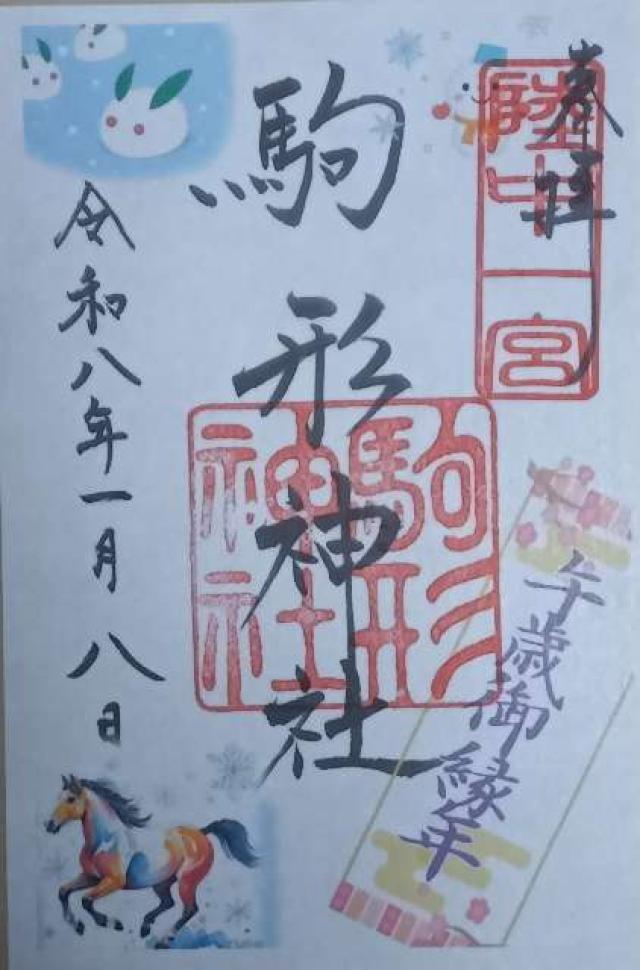 奉拝
陸中一宮
駒形神社
駒形
神社
午歳御縁年
令和八年一月八日